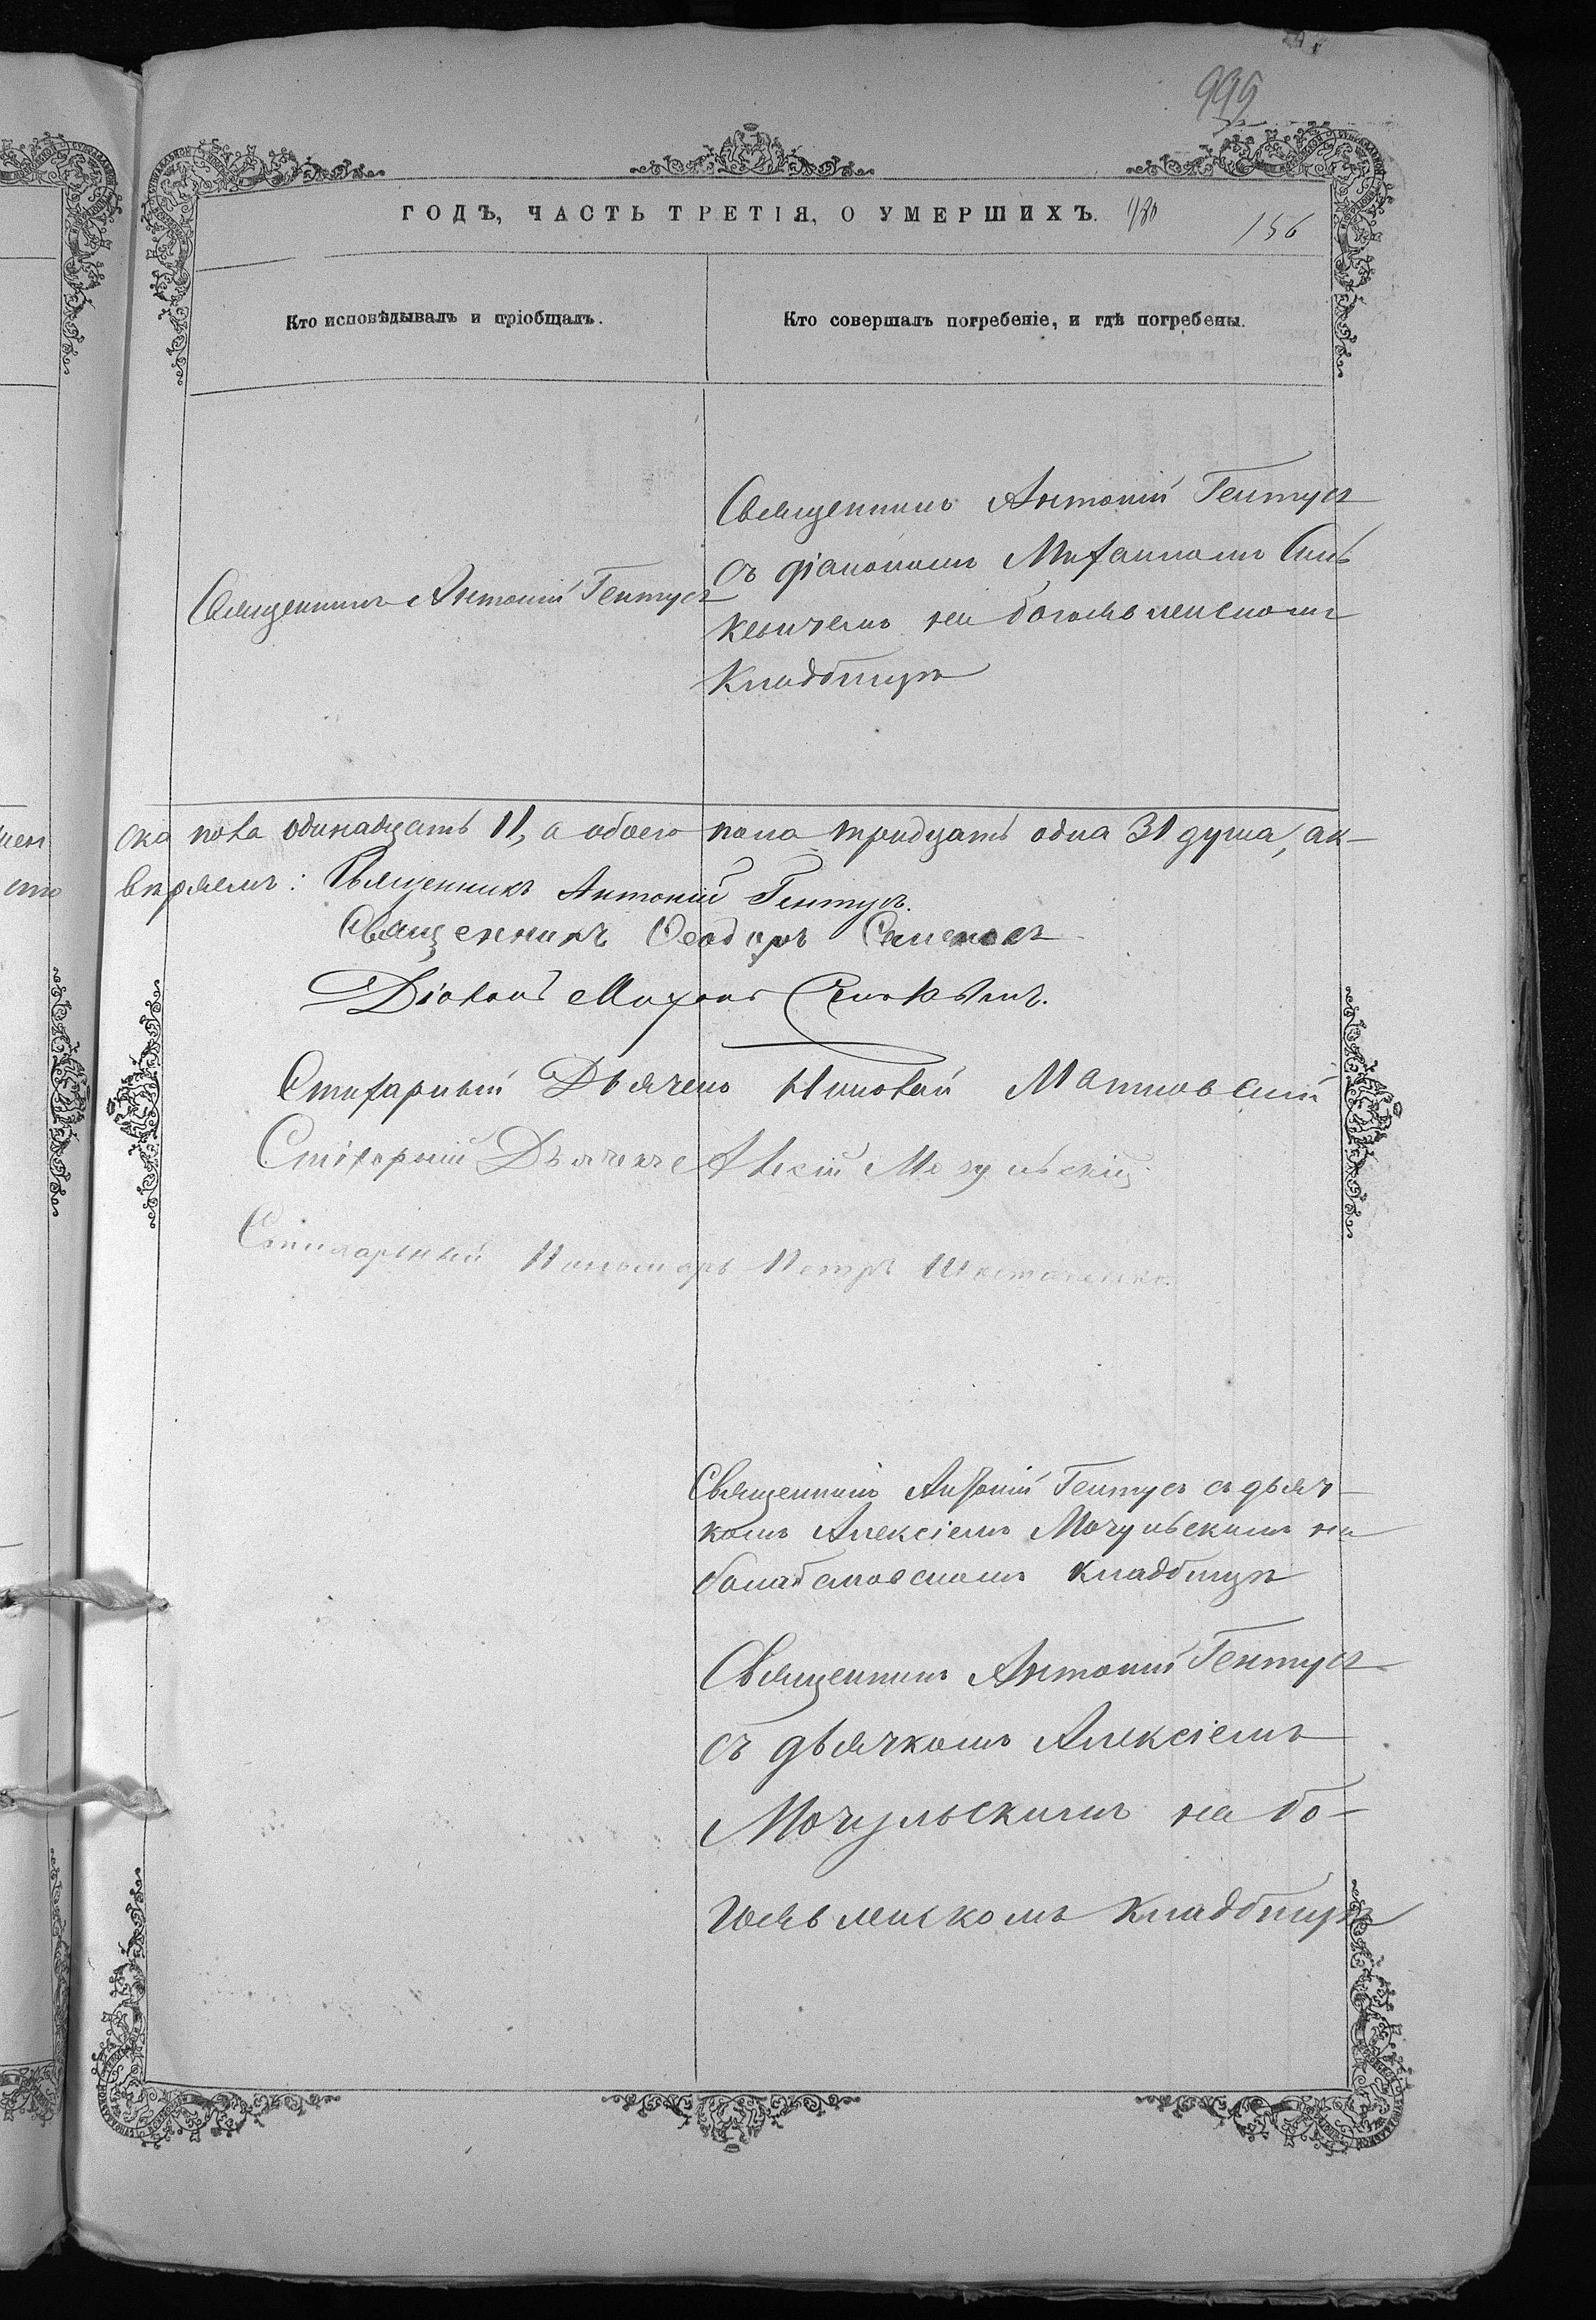 999
ГОДЪ, ЧАСТЬ ТРЕТІЯ, О УМЕРШИХЪ.
156
Кто исповѣдывалъ и пріобщалъ.
Кто совершалъ погребеніе, и гдѣ погребены.
Священникъ Антоній Гентусъ
Священникъ Антоній Гентусъ
съ діакономъ Михаиломъ Синь
кевичемъ на богоявленскомъ
Кладбищѣ
ска пола одинадцать 11, а обоего пола тридцать одна 31 душа, ак-
вѣряемъ: Священникъ Антоній Гентусъ.
Священникъ Ѳеодоръ
Діаконъ
Стихарный Дьячекъ Николай
Стихарный Дьячекъ Алексій Мочульскій
Стихарный Пономарь Петръ
Священникъ Антоній Гентусъ съ дьяч-
комъ Алексіемъ Мочульскимъ на
кладбищѣ
Священникъ Антоній Гентусъ
съ дьячкомъ Алексіемъ
Мочульскимъ на бо-
гоявленскомъ Кладбищѣ